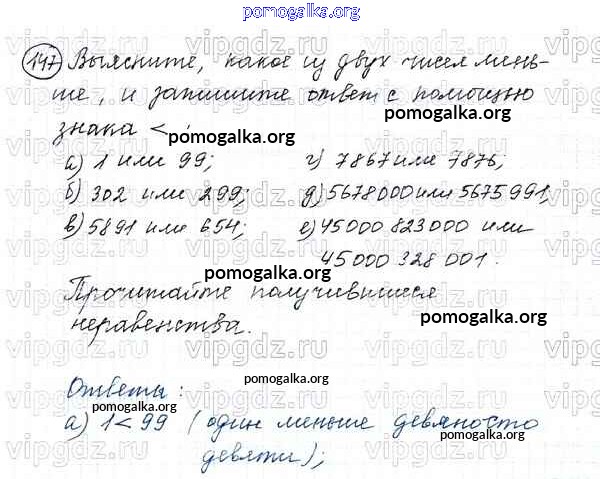 pomogalka.org
147 Выясните, какое из двух чисел мень-
ше, и запишите ответ с помощью
знака <
pomogalka.org
а) 1 или 99; г) 7867 или 7876;
б) 302 или 299; д) 5678000 или 5675991;
в) 5891 или 654; е) 45000823000 или
45000328001.
pomogalka.org
Прочитайте получившиеся
неравенства.
pomogalka.org
Ответы:
pomogalka.org
а) 1 < 99 (один меньше девяносто
девяти);
pomogalka.org
pomogalka.org
vipgdz.ru